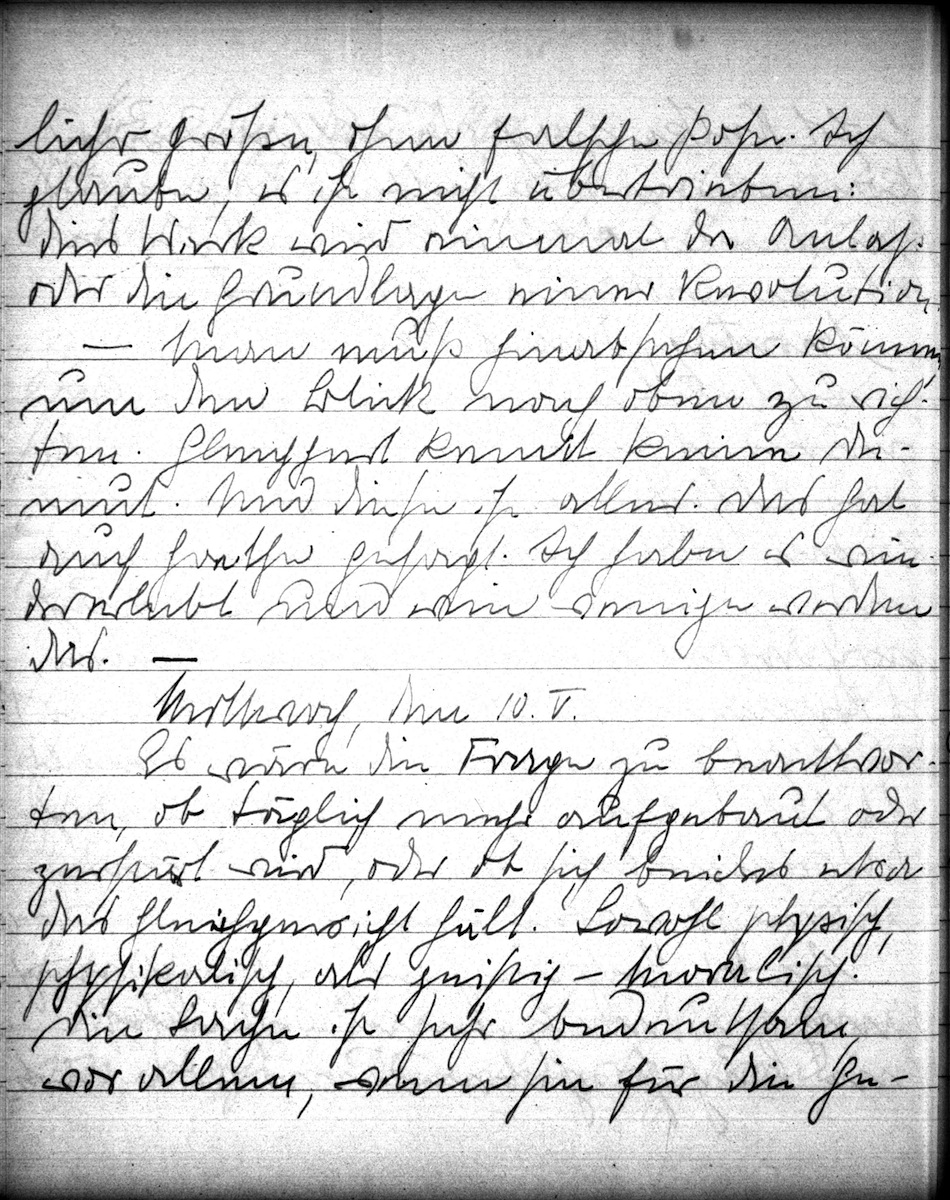 licher Größe, ohne falsche Pose. Ich
glaube, es ist nicht übertrieben:
dies Werk wird einmal der Anlaß
oder die Grundlage einer Revolution.
— Man muß hinabsehen können,
um den Blick nach oben zu rich-
ten. Hengst kennt keine De-
mut. Und diese ist alles. Das hat
auch Goethe gesagt. Ich habe es wie-
dererlebt und wie wenige werden
das. —
Mittwoch, den 10. V.
Es wäre die Frage zu beantwor-
ten, ob täglich mehr aufgebaut oder
zerstört wird, oder ob sich beides etwa
das Gleichgewicht hält. Sowohl physisch,
physikalisch, als geistig – moralisch.
Die Sache ist sehr bedeutsam,
vor allem, wenn sie für die Ge-